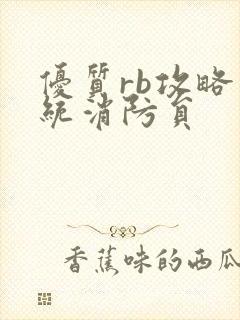 優質rb攻略
統消防員
香蕉味的西瓜